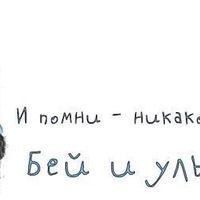 И помни - никак
Бей и улы